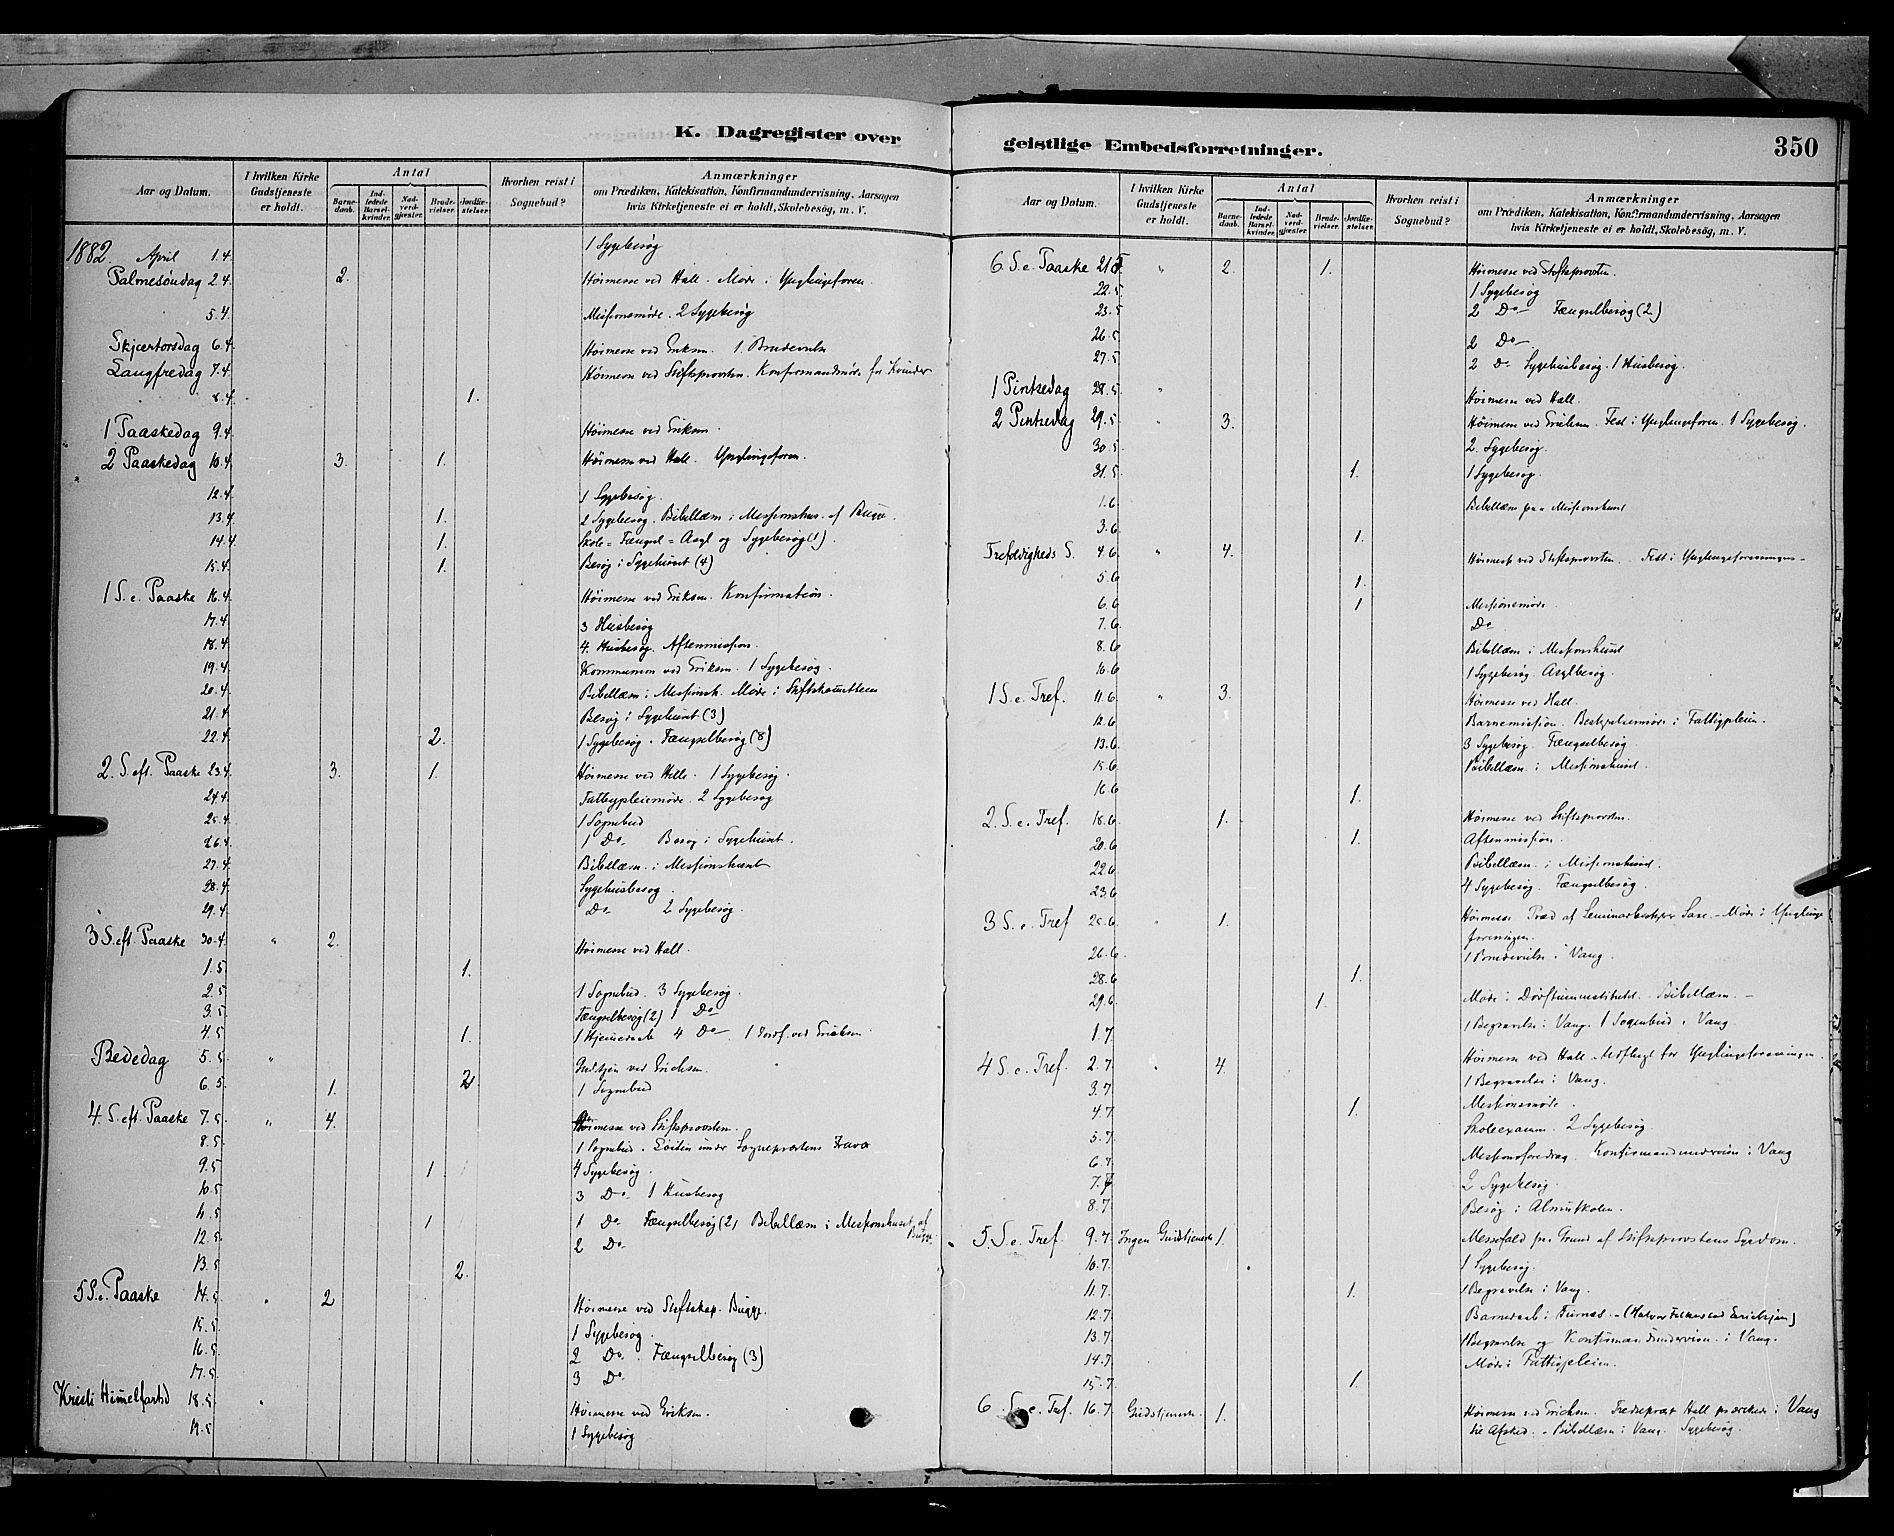 K. Dagregister over
Aar og Datum.
I hvilken Kirke Gudstjeneste er holdt.
Antal
Barnedaab.
Indledede Barselkvinder.
Nadverdgjester.
Brudevielser.
Jordfæstelser.
Hvorhen reist i Sognebud?
Anmærkninger
om Prædiken, Katekisation, Konfirmandundervisning, Aarsagen
hvis Kirketjeneste ei er holdt, Skolebesøg, m. V.
1882. April 1.4. 1 Sygebesøg
Palmesøndag 2.4. 2. Høimesse ved Hall. Møde i Ynglingeforen.
5.4. Missionsmøde. 2 Sygebesøg
Skjærtorsdag 6.4. Høimesse ved Eriksen. 1 Brudevielse
Langfredag 7.4. Høimesse ved Stiftsprovsten. Konfirmandmøde for Kvinder
8.4. 1.
1 Paaskedag 9.4. Høimesse ved Eriksen.
2 Paaskedag 10.4. 3. 1. Høimesse ved Hall. Ynglingeforen.
12.4. 1 Sygebesøg.
13.4. 1. 2 Sygebesøg. Bibellæsn. i Missionshus. af Bugge.
14.4. 1. Skole- Fængsel- Asyl og Sygebesøg (1).
15.4. 1. Besøg i Sygehuset (4)
1 S. e. Paaske 16.4. Høimesse ved Eriksen. Konfirmation.
17.4. 3 Husbesøg
18.4. 4. Husbesøg. Aftenmission.
19.4. Kommunion ved Eriksen. 1 Sygebesøg.
20.4. Bibellæsn. i Missionsh. Møde i Stiftskomitteen
21.4. Besøg i Sygehuset (3)
22.4. 2. 1 Sygebesøg. Fængselbesøg (8)
2. S. eft. Paaske 23.4. 3. 1. Høimesse ved Hille. 1 Sygebesøg.
24.4. Fattigpleiemøde. 2 Sygebesøg
25.4. 1 Sognebud
26.4. 1 Do Besøg i Sygehuset.
27.4. Bibellæsn. i Missionshuset
28.4. Sygehusbesøg.
29.4. Do 2 Sygebesøg.
3 S. eft. Paaske 30.4. " 2. Høimesse ved Hall.
1.5 1.
2.5 1 Sognebud. 3 Sygebesøg.
3.5 Fængselbesøg (2) 1 Do
4.5 1. 1 Hjemmedaab 4 Do. 1 Jordf. ved Eriksen.
Bededag 5.5 " Gudstjen ved Erichsen.
6.5 1. 2. 1 Sognebud
4. S. eft. Paaske 7.5. " 4. Høimesse ved Stiftsprovsten.
8.5. 1 Sognebud. under Sogneprestens Fravær
9.5 1 4 Sygebesøg.
10.5 3 Do. 1 Husbesøg
11.5. 1 1 Do Fængselbesøg (2) Bibellæsn i Missionshuset af Bugge.
12.5. 2 Do
13.5 2.
5 S. e. Paaske 14.5. " 2 Høimesse ved Stiftskap. Bugge.
15.5. 1 Sygebesøg.
16.5. 2 Do. Fængselbesøg (3)
17.5. 3 Do
Kristi Himmelfartsd 18.5. " Høimesse ved Eriksen.
19.5 1 Sygebesøg
geistlige Embedsforretninger.
350
Aar og Datum.
I hvilken Kirke Gudstjeneste er holdt.
Antal
Barnedaab.
Indledede Barselkvinder.
Nadverdgjester.
Brudevielser.
Jordfæstelser.
Hvorhen reist i Sognebud?
Anmærkninger
om Prædiken, Katekisation, Konfirmandundervisning, Aarsagen
hvis Kirketjeneste ei er holdt, Skolebesøg, m. V.
6. S. e. Paaske 21.5 " 2. 1. Høimesse ved Stiftsprovsten.
22.5 1 Sygebesøg
23.5 2 Do Fængselbesøg (2)
26.5 2 Do
27.5 2 Do Sygehusbesøg. 1 Husbesøg.
1 Pintsedag 28.5 " Høimesse ved Hall.
2 Pintsedag 29.5 " 3. Høimesse ved Eriksen. Fest i Ynglingeforen. 1 Sygebesøg.
30.5 2. Sygebesøg.
31.5 1. 1 Sygebesøg.
1.6 Bibellæsn paa Missionshuset
3.6 1.
Trefoldigheds S. 4.6 " 4. Høimesse ved Stiftsprovsten. Fest i Ynglingeforeningen
5.6 1.
6.6 1 Missionsmøde.
7.6. Do
8.6 Bibellæsn i Missionshuset
10.6 1 Sygebesøg. Asylbesøg.
1 S. e. Tref. 11.6. " 3. Høimesse ved Hall.
12.6 Barnemission. Bestyrelsesmøde i Fattigpleien.
13.6. 3 Sygebesøg. Fængselbesøg
15.6 Bibellæsn. i Missionshuset.
16.6 1.
2. S. e. Tref. 18.6 1. Høimesse ved Stiftsprovsten.
20.6 1. Aftenmission.
22.6 Bibellæsn. i Missionshuset.
23.6 4 Sygebesøg. Fængselbesøg.
3 S. e. Tref 25.6 " 1. Høimesse Præd af Seminarbestyrer Saxe. - Møde i Ynglinge
foreningen.
26.6. 1 Brudevielse i Vang.
28.6 1.
29.6 1. Møde i Døvstummeinstitutet. Bibellæsn.
1.7. 1 Begravelse i Vang. 1 Sognebud i Vang
4 S. e. Tref. 2.7. " 4. Høimesse ved Hall. Udflugt for Ynglingeforeningen.
3.7 1 Begravelse i Vang.
4.7 1. Missionsmøde.
5.7. Skoleexamen. 2 Sygebesøg.
6.7. Missionsforedrag. Konfirmandundervisn i Vang
7.7 2 Sygebesøg.
8.7. Besøg i Almuskolen.
5. S. e. Tref 9.7. Ingen Gudstjeneste 1. Messefald pr. Grund af Stiftsprovstens Sygdom.
10.7. 1 Sygebesøg.
11.7. 1. 1 Begravelse i Vang.
12.7. Barnedaab i Furnes.
13.7. 1 Begravelse og Konfirmandundervisn. i Vang.
14.7. Møde i Fattigpleien.
15.7 1.
6. S. e. Tref. 16.7. Gudstjeneste. 1. Høimesse ved Erichsen. Hall prækede i Vang
til Afsked. - Bibellæsn i Vang. Sygebesøg.